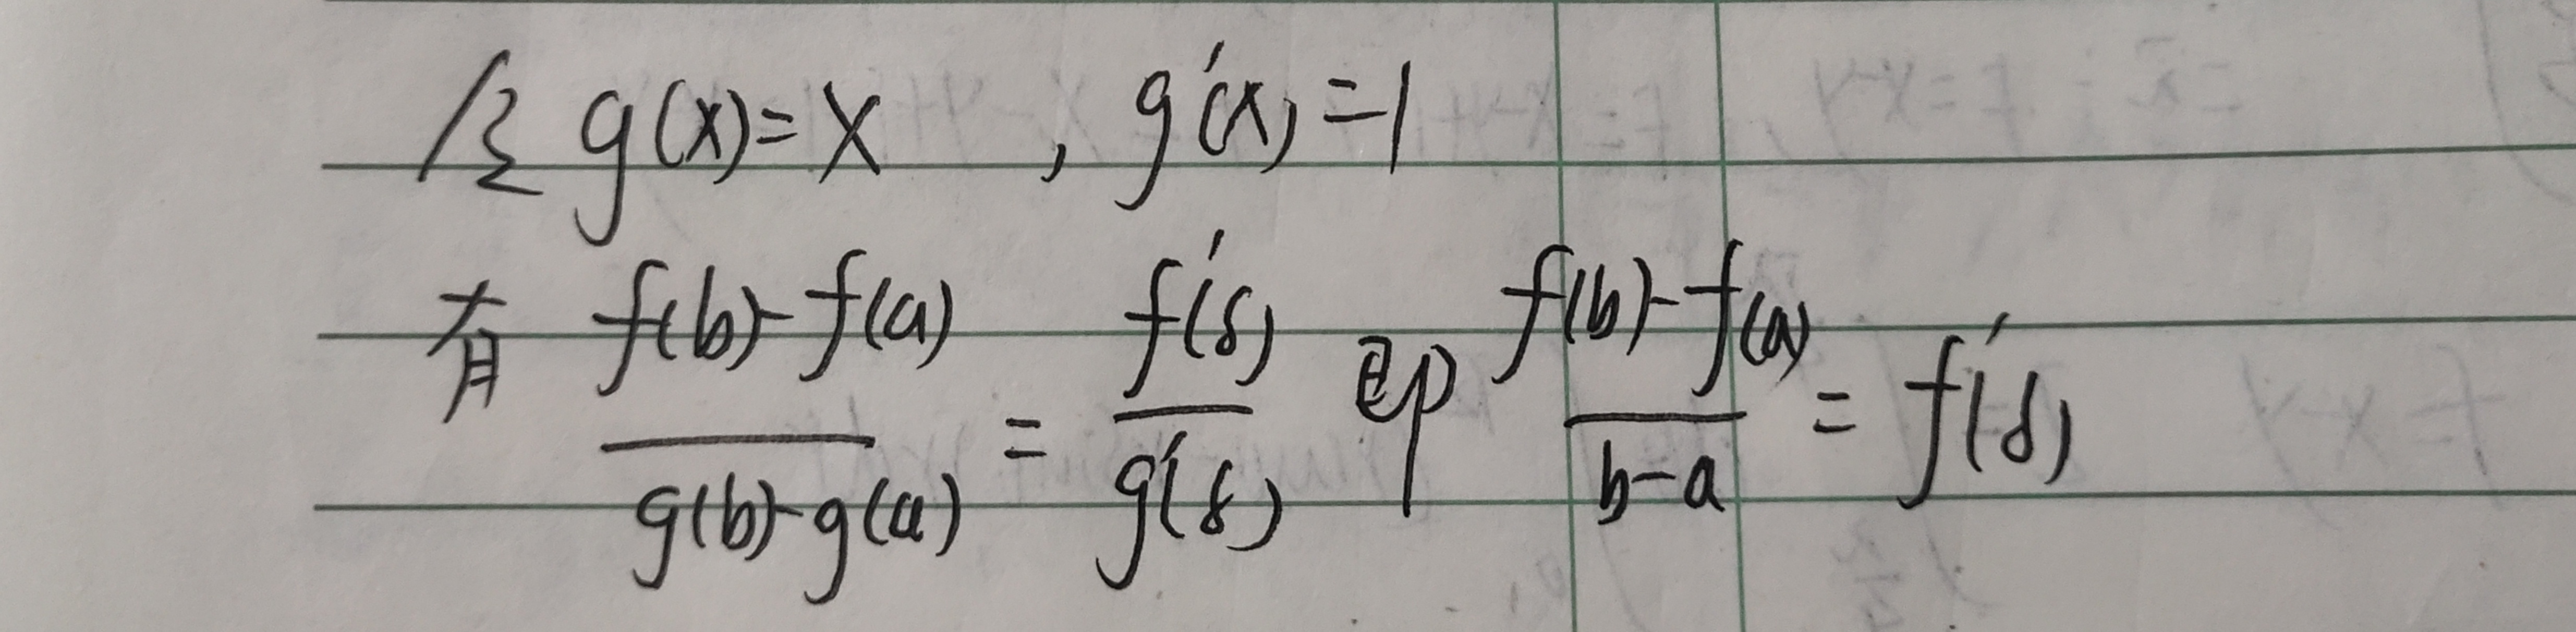 令 g(x)=x , g'(x)=1
有 \frac{f(b)-f(a)}{g(b)-g(a)} = \frac{f'(δ)}{g'(δ)} 即 \frac{f(b)-f(a)}{b-a} = f'(δ)